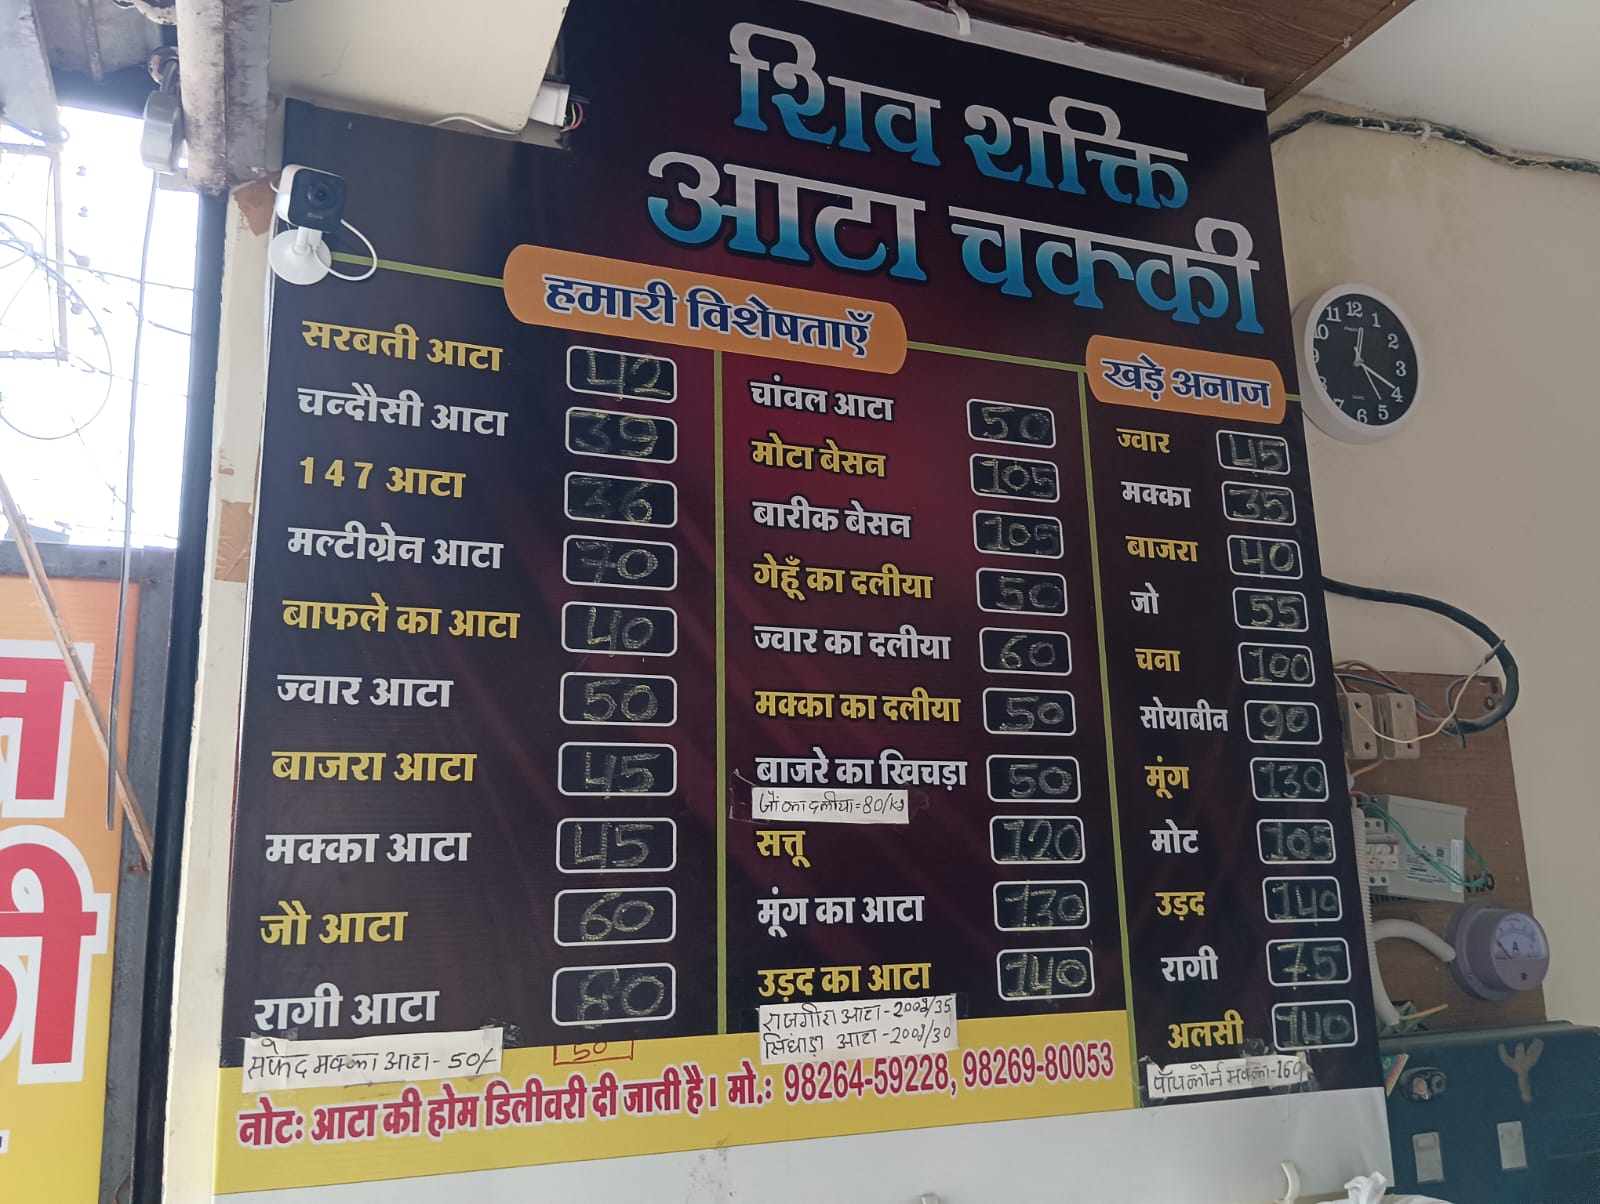 शिव शक्ति
आटा चक्की
हमारी विशेषताएँ
सरबती आटा 42
चन्दौसी आटा 39
147 आटा 36
मल्टीग्रेन आटा 70
बाफले का आटा 40
ज्वार आटा 50
बाजरा आटा 45
मक्का आटा 45
जौ आटा 60
रागी आटा 80
सफेद मक्का आटा - 50/-
50
चांवल आटा 50
मोटा बेसन 105
बारीक बेसन 105
गेहूँ का दलीया 50
ज्वार का दलीया 60
मक्का का दलीया 50
बाजरे का खिचड़ा 50
जौ का दलीया = 80/kg
सत्तू 120
मूंग का आटा 130
उड़द का आटा 140
राजगीरा आटा - 200g/35
सिंघाड़ा आटा - 200g/30
खड़े अनाज
ज्वार 45
मक्का 35
बाजरा 40
जो 55
चना 100
सोयाबीन 90
मूंग 130
मोट 105
उड़द 140
रागी 75
अलसी 140
पॉपकोर्न मक्का - 160/
नोटः आटा की होम डिलीवरी दी जाती है। मो.: 98264-59228, 98269-80053
12 1 2 3 4 5 6 7 8 9 10 11
A